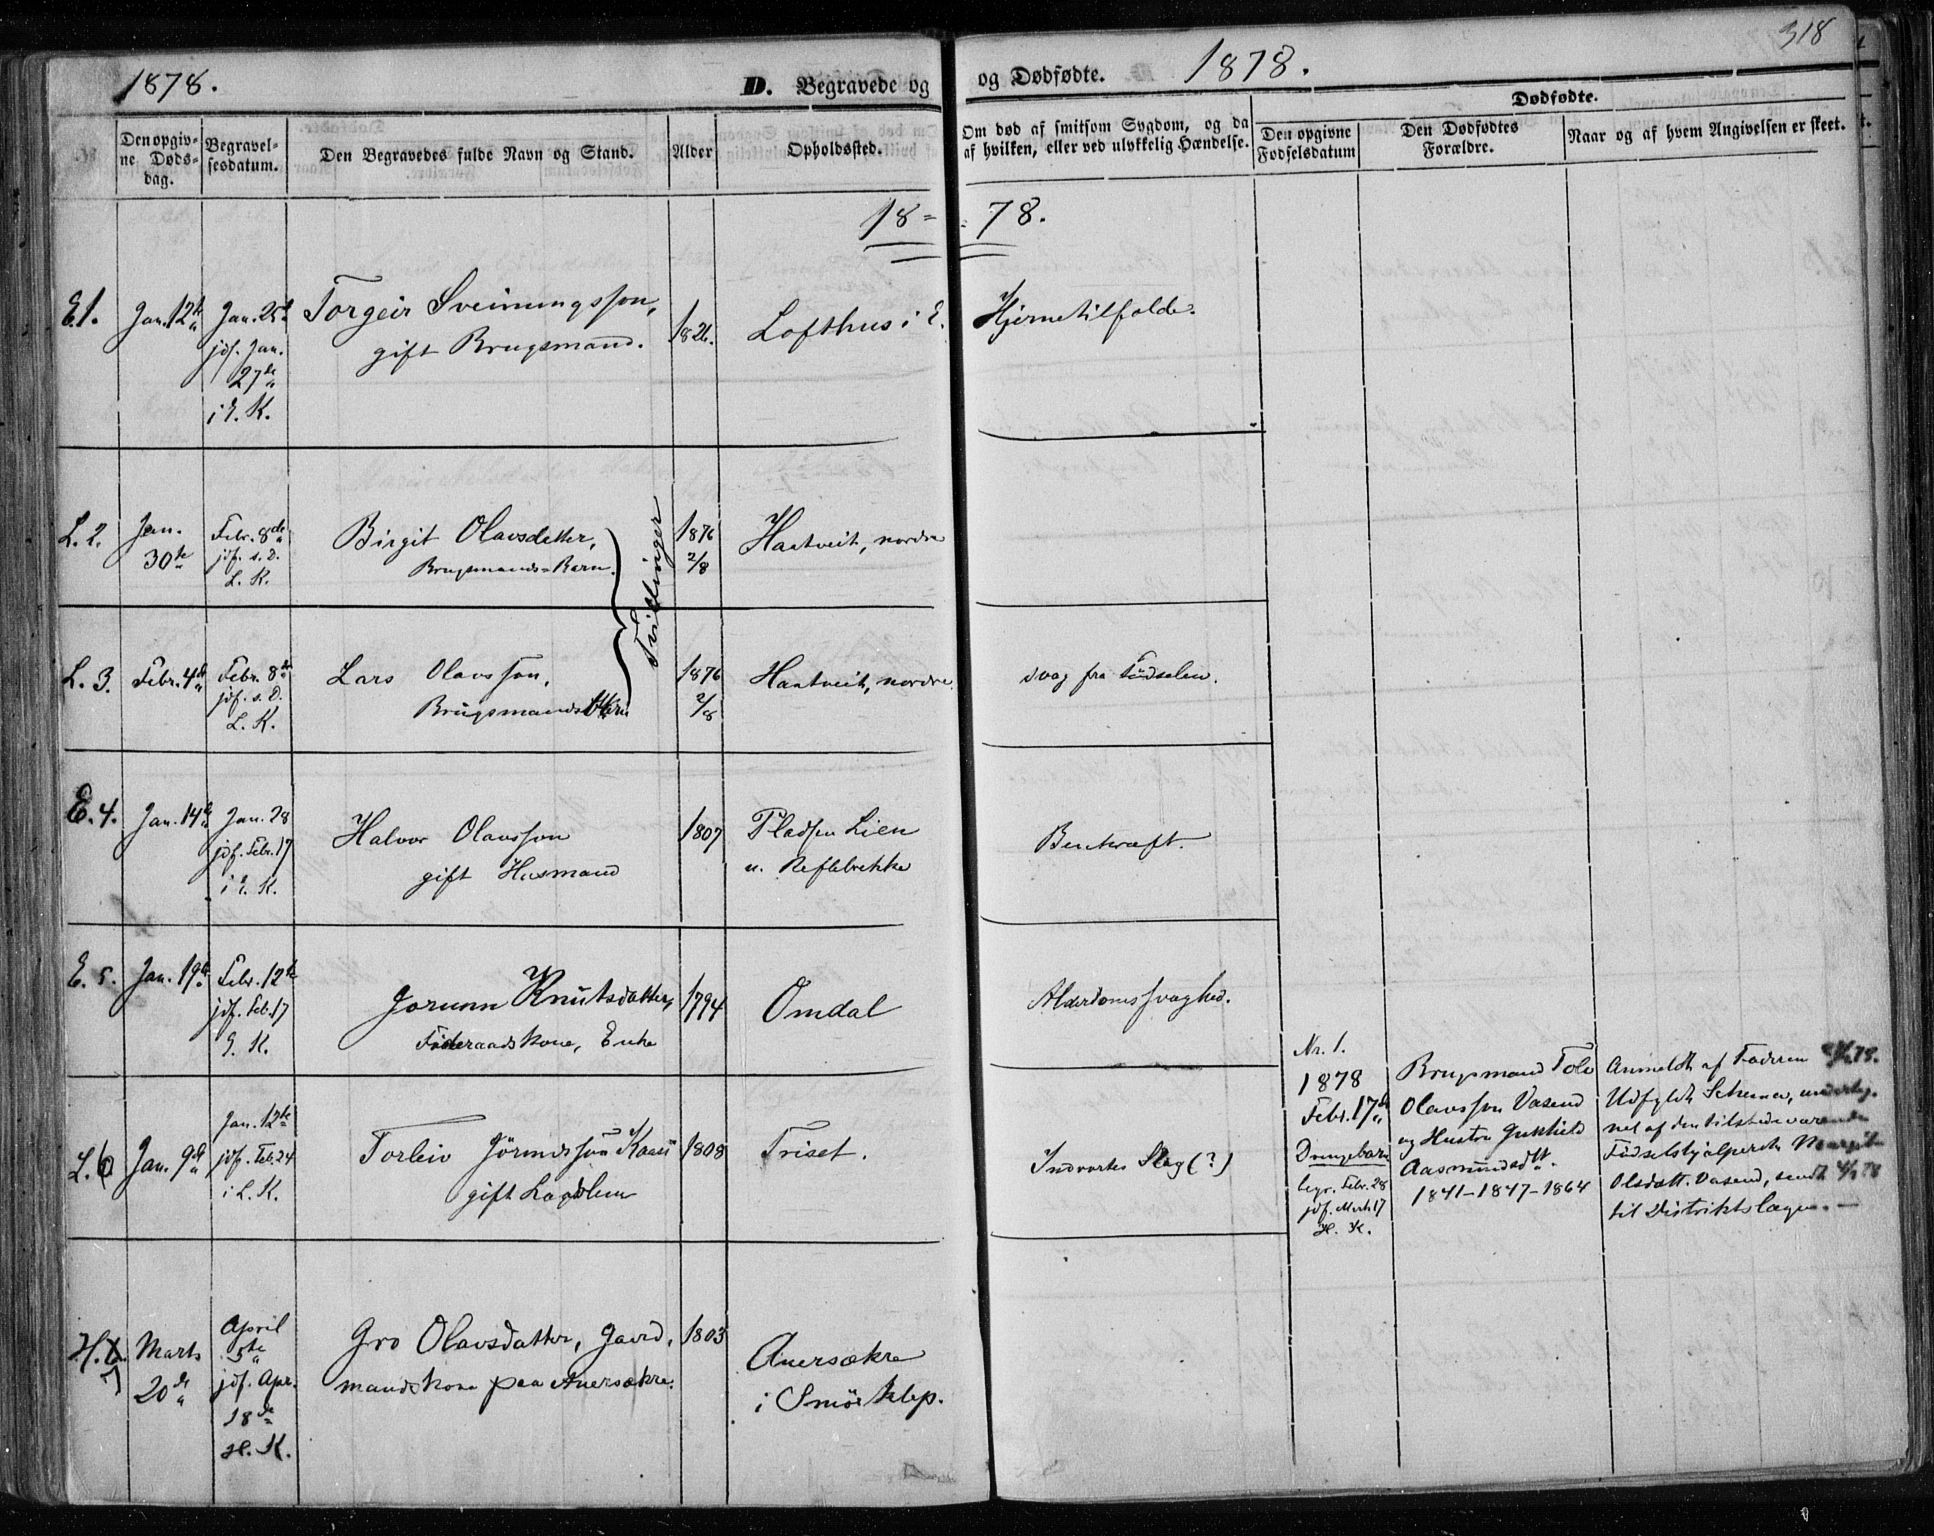 1878.
D. Begravede og
og Dødfødte.
1878.
318
Den opgivne Dødsdag.
Begravelsesdatum.
Den Begravedes fulde Navn og Stand.
Alder
Opholdssted.
Om død af smitsom Sygdom, og da
af hvilken, eller ved ulykkelig Hændelse.
Dødfødte.
Den opgivne
Fødselsdatum
Den Dødfødtes
Forældre.
Naar og af hvem Angivelsen er skeet.
18 = = 78.
E. 1.
Jan. 12te
Jan. 25de
jdf. Jan.
27de
i E. K.
Torgeir Sveinungsson,
gift Brugsmand.
1826.
Lofthus i E.
Hjernetilfælde.
L. 2.
Jan.
30te
Febr. 8de
jdf. s. D.
L. K.
Birgit Olavsdatter,
Brugsmands-Barn.
Tvillinger
1876
2/8
Haatveit, nordre
L. 3.
Febr. 4de
Febr. 8de
jdf. s. D.
L. K.
Lars Olavsson,
Brugsmands Barn
1876
2/8
Haatveit, nordre.
svag fra Fødselen.
E. 4.
Jan. 14de
Jan. 28
jdf. Febr. 17
i E. K.
Halvor Olavsson
gift Husmand
1807
Pladsen Lien
u.
Benkræft.
E. 5.
Jan. 19de
Febr. 12te
jdf. Feb. 17
E. K.
Jorunn Knutsdatter,
Föderaadskone, Enke
1794
Omdal
Alderdomssvaghed.
L. 6
Jan. 9de
Jan. 12te
jdf. Feb. 24
i L. K.
Torleiv
gift Lægdslem
1808
Triset.
Indvortes Slag (?)
Nr. 1.
1878
Febr. 17de
Drengebarn
begr. Febr. 28
jdf. Marts 17
H. K.
Brugsmand Tolv
Olavsson Vasend
og Hustru Gunhild
Aasmundsdtt.
1841 – 1847 – 1864
Anmeldt af Faderen
Udfyldt Schema, underteg-
net af den tilstedeværende
Fødselshjælperske Margit
Olsdatt. Vasend, sendt
til Distriktslægen. —
H. 7
Marts
20de
April
5te
jdf. Apr.
18de
H. K.
Gro Olavsdatter, Gaard-
mandskone paa Aversækre.
1803
Aversækre
i Smörklep.